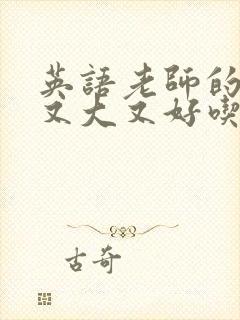 英語老師的
又大又好喫
古奇